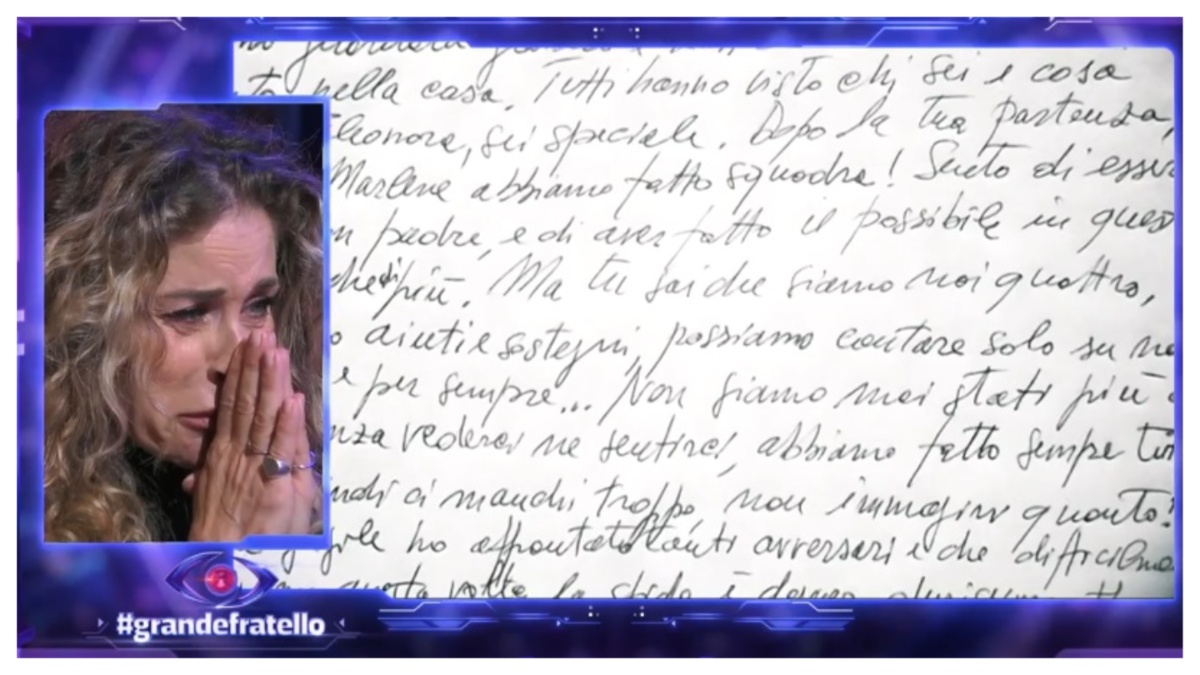 nella casa. Tutti hanno visto chi sei e cosa
Eleonora, sei speciale. Dopo la tua partenza,
Marlene abbiamo fatto squadra! Sento di esser
n padre, e di aver fatto il possibile in ques
che di più. Ma tu sai che siamo noi quattro,
o aiuti e sostegni, possiamo contare solo su no
e per sempre... Non siamo mai stati più
nza vederci ne sentirci, abbiamo fatto sempre tut
indi ci manchi troppo, non immagini quanto!
ho affrontato tanti avversari e che difficilme
questa volta la sfida è
#grandefratello